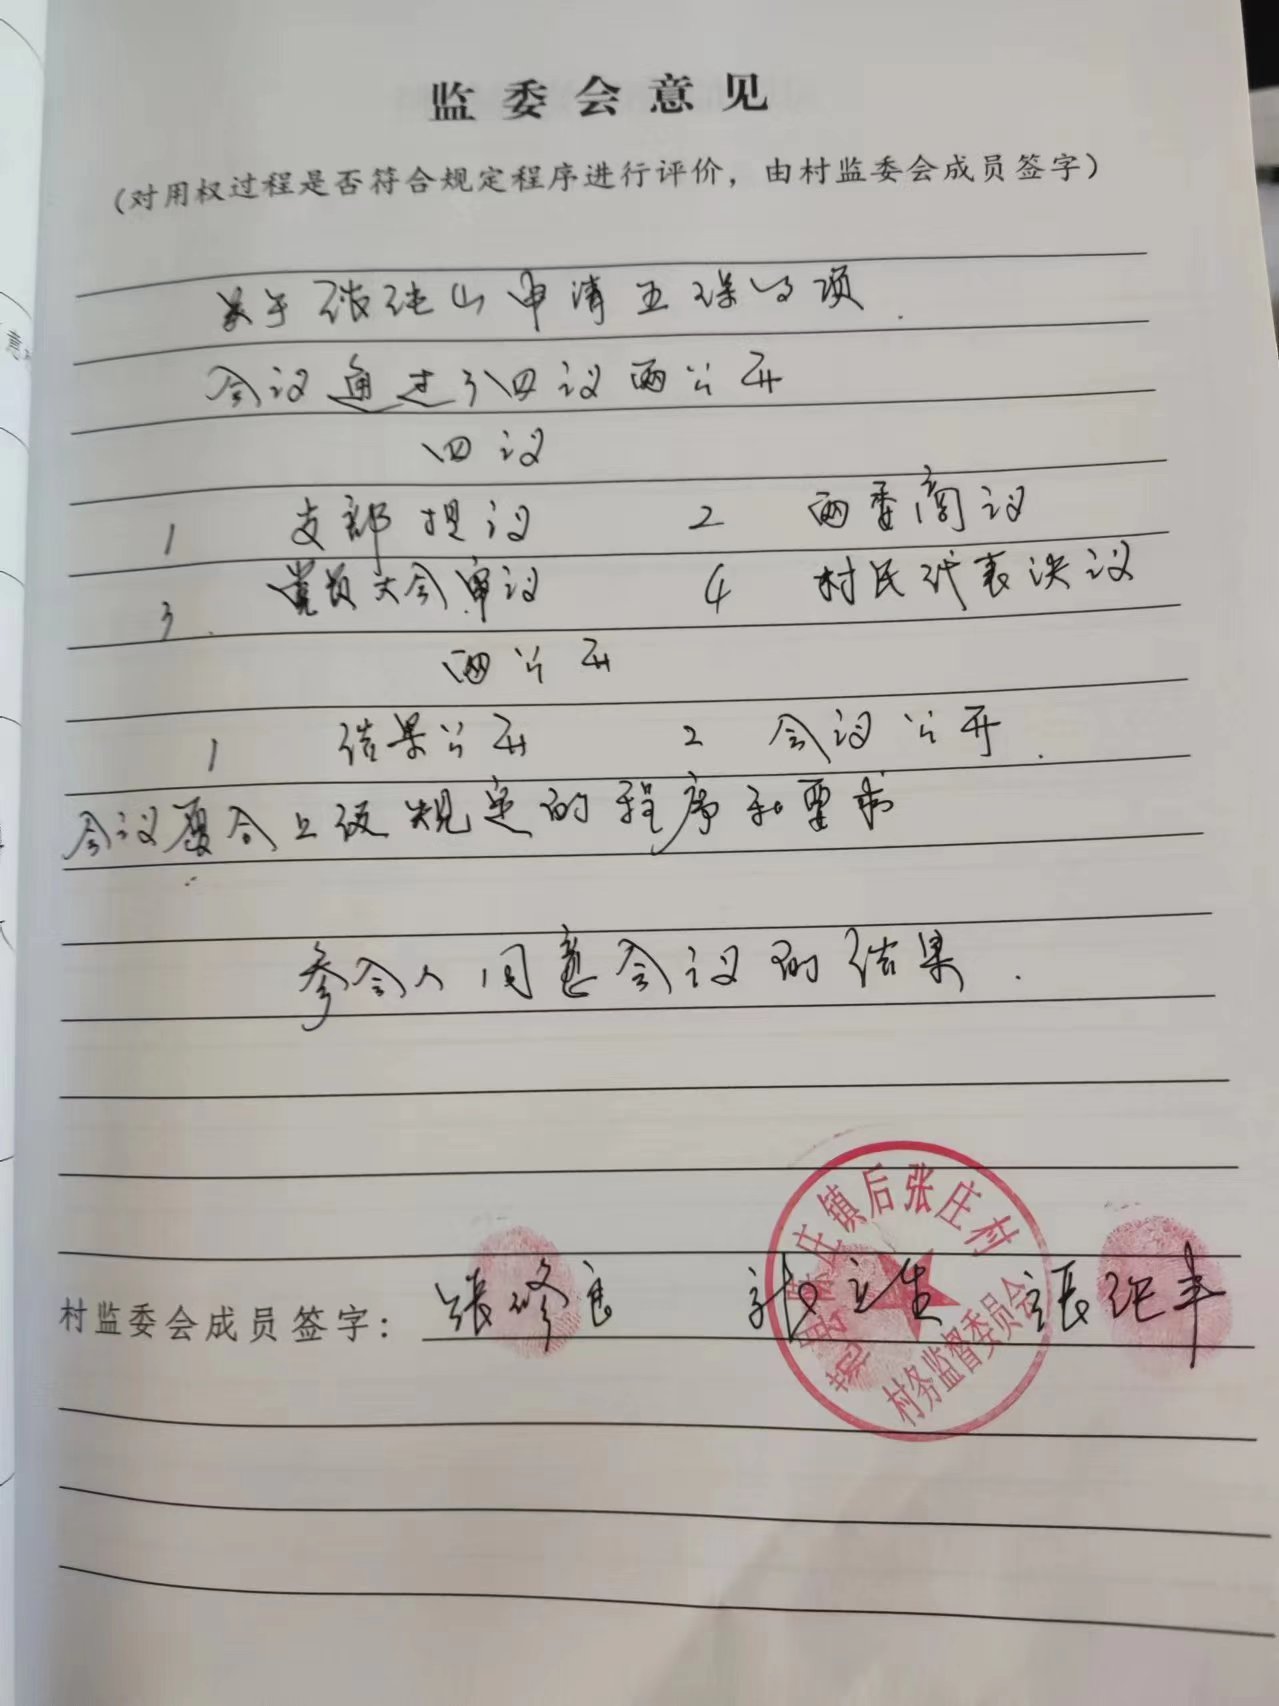 监委会意见
（对用权过程是否符合规定程序进行评价，由村监委会成员签字）
关于张继山申请五保事项.
会议通过了四议两公开
四议
1 支部提议 2 两委商议
3. 党员大会审议 4 村民代表决议
两公开
1 结果公开 2 会议公开.
会议覆合上级规定的程序和要求
参会人同意会议的结果.
庄镇后张庄村
村务监督委员会
村监委会成员签字：张修良 立生 張继丰